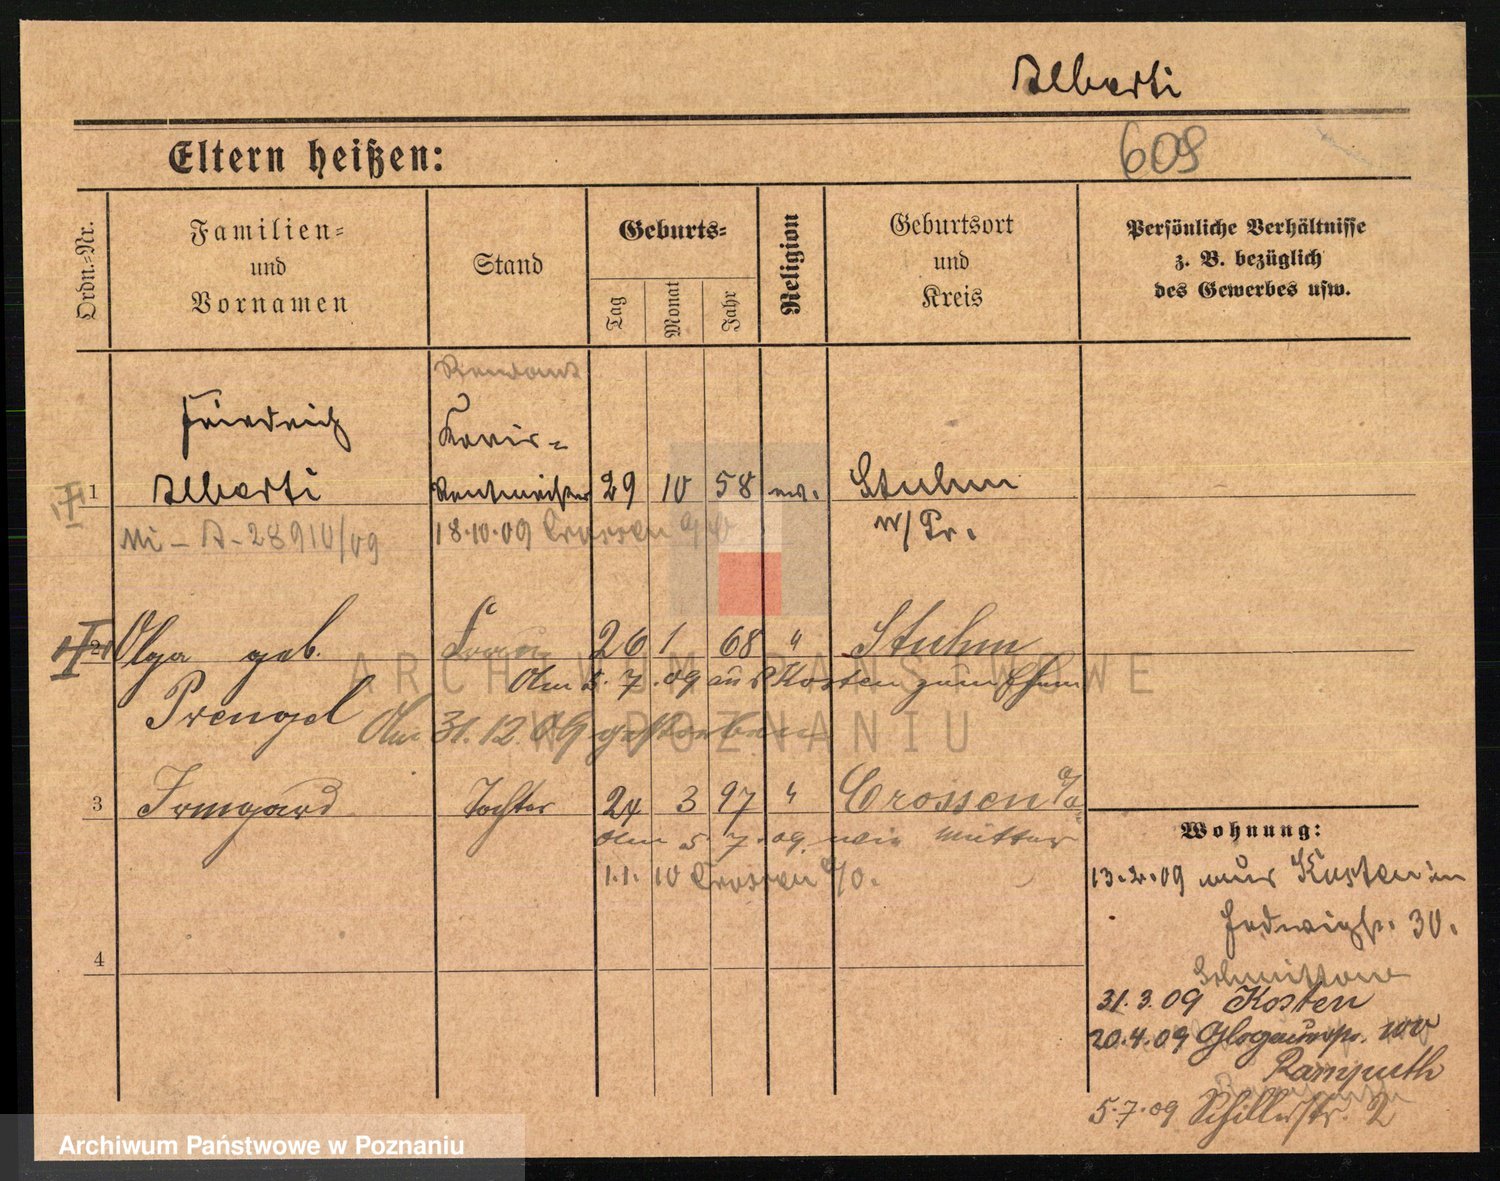 Alberti
609
Eltern heißen:
Ordn.-Nr.
Familien-
und
Vornamen
Stand
Geburts-
Tag
Monat
Jahr
Religion
Geburtsort
und
Kreis
Persönliche Verhältnisse
z. B. bezüglich
des Gewerbes usw.
Rendant
Friedrich
1 Alberti Rentmeister 29 10 58 ev. Stuhm
W/Pr.
18.10.09 Crossen
2 Olga geb. Frau 26 1 68 " Stuhm
Am 5.7.09 aus Kosten zum Ehem
Prengel
Am 31.12.09 gestorben
3 Irmgard Tochter 24 3 97 " Crossen a/O
Am 5.7.09 wie Mutter
1.1.10 Crossen a/O.
4
Wohnung:
13.2.09 aus Kosten in
Hedwigstr. 30.
31.3.09 Kosten
20.4.09
Ramputh
5.7.09 Schillerstr. 2
ARCHIWUM PAŃSTWOWE
W POZNANIU
Archiwum Państwowe w Poznaniu